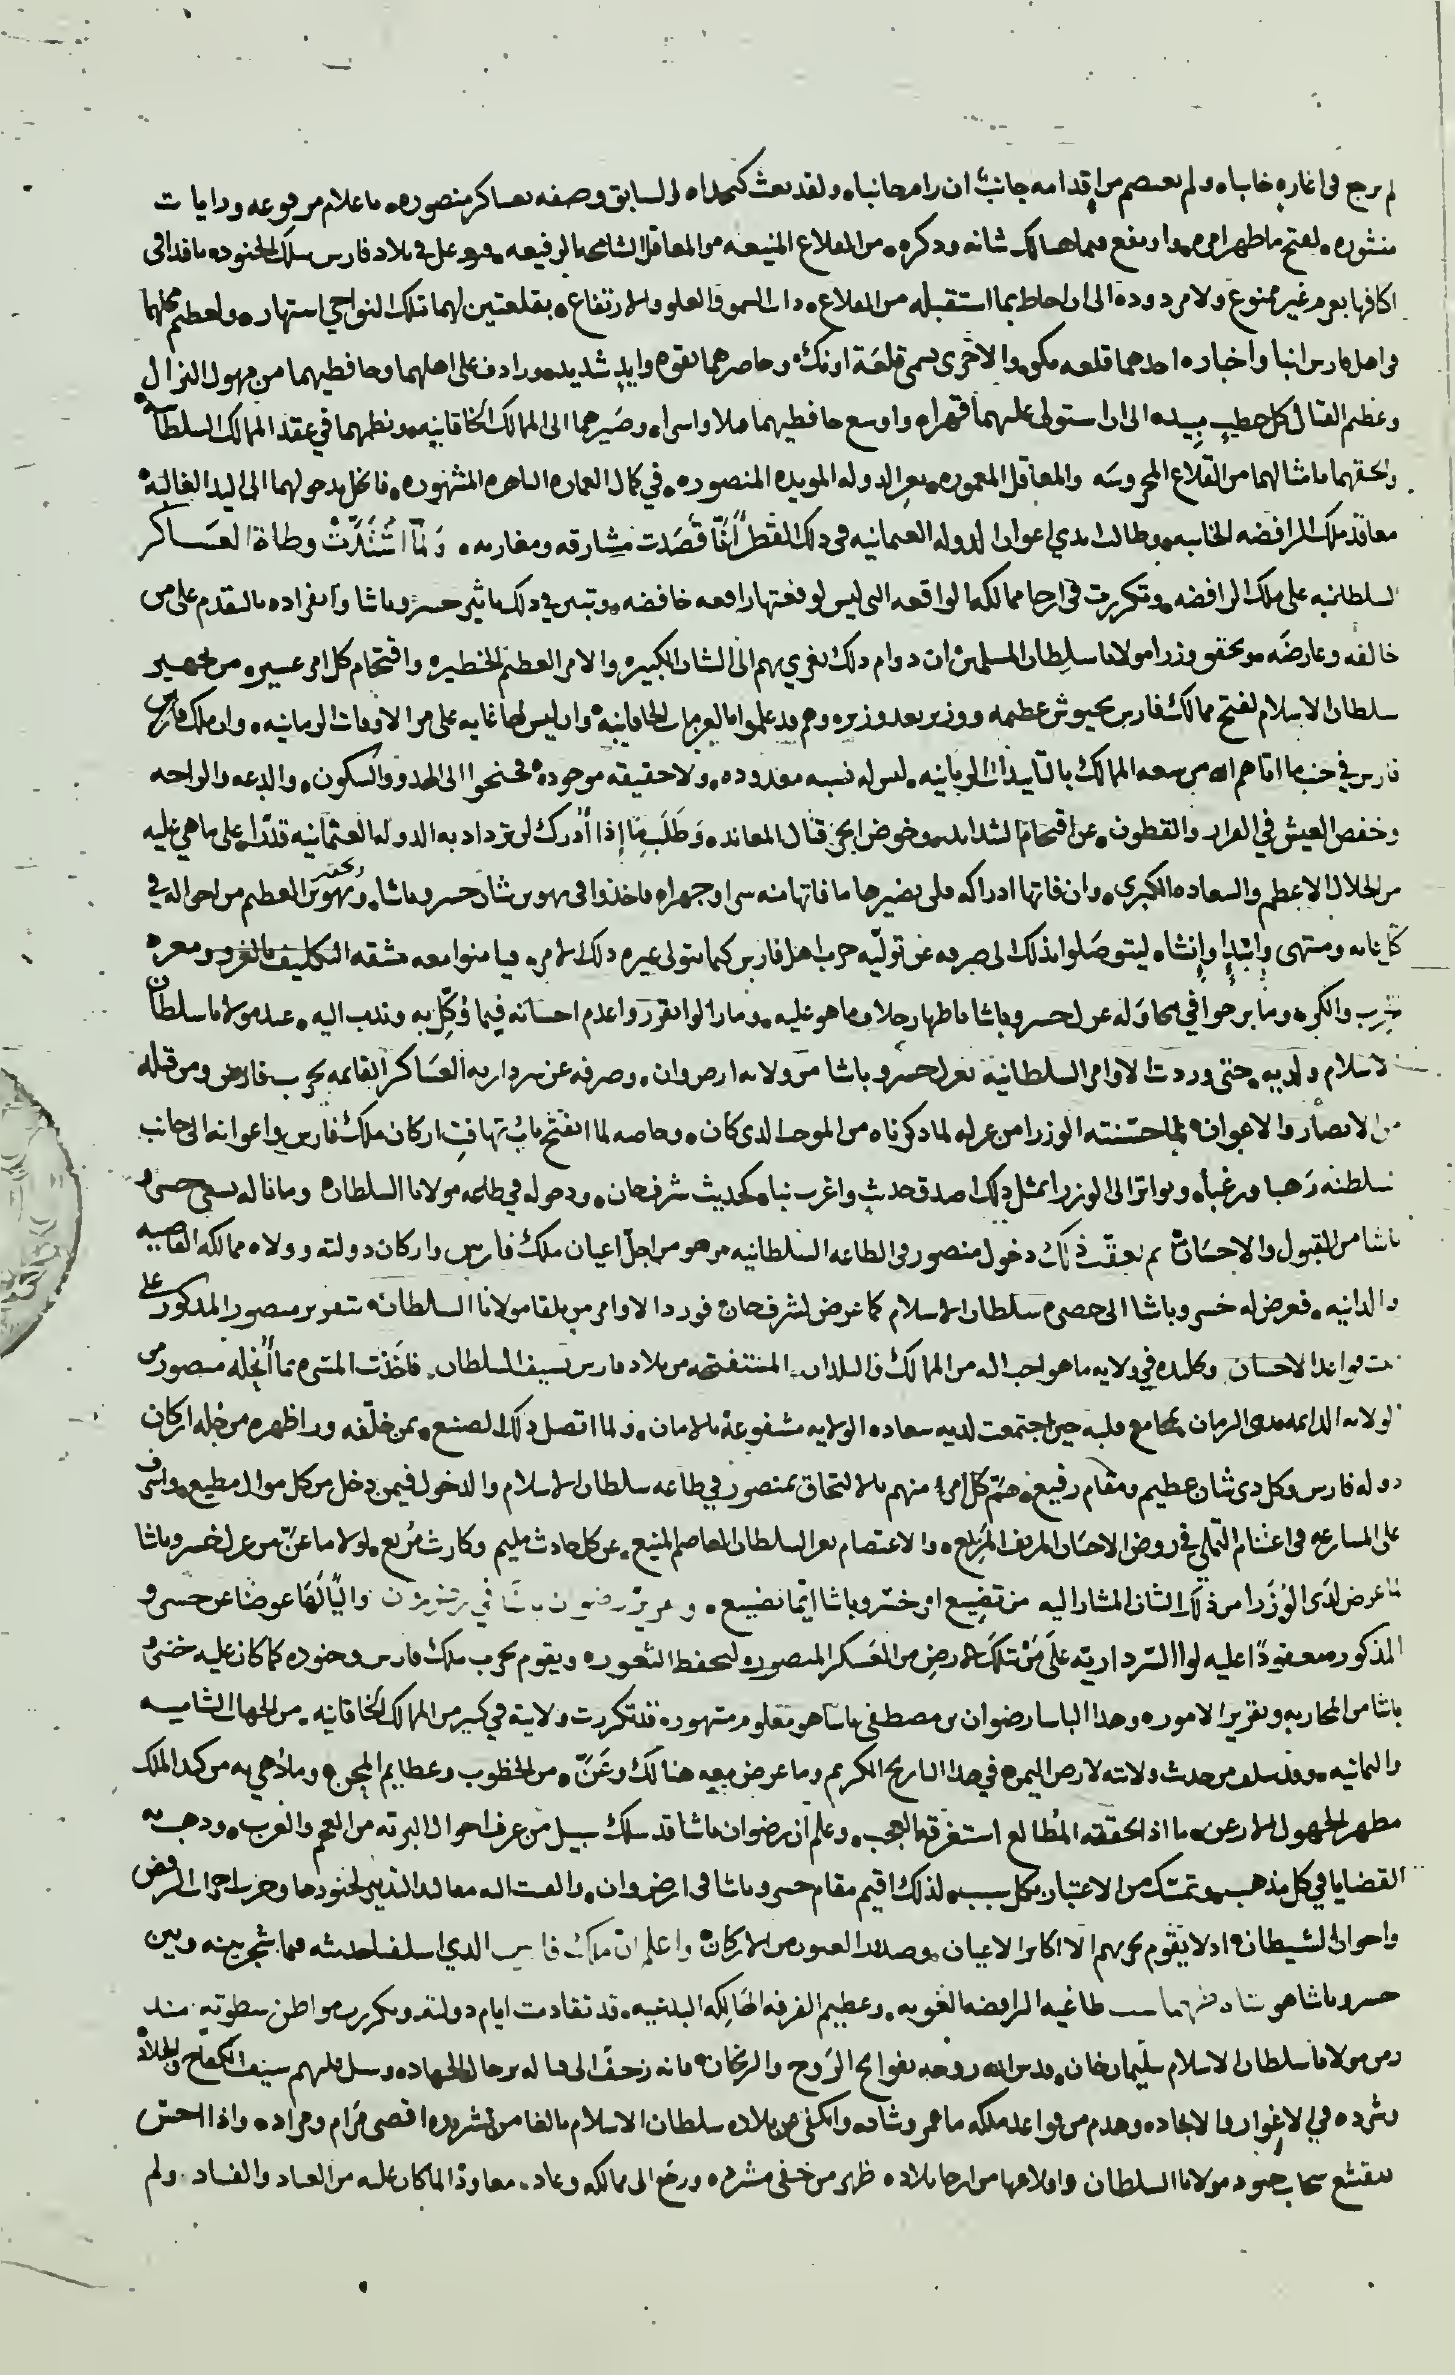 لم يرجع في اغاره خابا ولم يعصم من اقدامه جانب ان رام جانبا ولقد بعث كيخدا الى السابق وصفه بعساكر منصوره باعلام مرفوعه ورايات
منشوره لفتح ما ظهر امره وارتفع فيما هنالك شانه وذكره من القلاع المنيعه من المعاقل الشامخه الرفيعه في بلاد فارس بتلك الجنود نافذا في
اكنافها بعزم غير ممنوع ولا مردود الى ان احاط بما استقبله من القلاع ذات السمو والعلو والارتفاع بقلعتين لهما بتلك النواحي اشتهار ولعظم محلهما
في اهل فارس انبا واخبار احدهما قلعه والاخرى تسمى قلعة وحاصرهما بقوه وايد شديد ورادف على اهلهما وحافظيهما من مهول النزال
وعظيم القتال كل خطب مبيد الى ان استولى عليهما قهرا واوسع حافظيهما قتلا واسرا وصيرهما الى الممالك الخاقانيه ونظمهما في عقد الممالك السلطانية
والحقهما بامثالهما من القلاع المحروسه والمعاقل المعموره بعز الدوله المويده المنصوره في كمال العماره الباهره المشهوره فانحل بدخولهما الى اليد الغالبة
معاقد ملك الرافضه الخايبه وطالت ايدي اعوان الدوله العثمانيه في ذلك القطر أنّا قصدت مشارقه ومغاربه ولمّا اشتدّت وطاة العساكر
السلطانيه على ملك الرافضه وتكررت في ارجا ممالكه الواقعه التي ليس لوقعتها رافعه خافضه وتبين في ذلك تاثير خسرو باشا وانفراده بالتقدم على من
خالفه وعارضه تحقق وزرا مولانا سلطان المسلمين ان دوام ذلك يغري بهم الى الشان الكبير والامر العظيم الخطير واقتحام كل امر عسير من تجهيز
سلطان الاسلام لفتح ممالك فارس بجيوش عظيمه ووزير بعد وزير وهم قد علموا ما للعزمات الخاقانية وان ليس لها غايه على مر الاوقات الزمانيه وان ملك فارس
فارس في جنب ما اتاهم الله من سعه الممالك بالتاييدات الربانيه ليس له نسبه معدوده ولا حقيقه موجودة فجنحوا الى الهدو والسكون والدعه والراحه
وخفض العيش في القرار والقطون عن اقتحام الشدايد وخوض ابحر قتال المعاند وطلب ما إذا أدرك لن تزداد به الدوله العثمانيه قدرا على ما هي عليه
من الجلال الاعظم والسعاده الكبرى وان فاتها ادراكه فلن يضيرها ما فاتها منه سرا وجهرا فاخذوا في تهوين شان خسرو باشا وتحقير وتهوين العظيم من احواله في
كتاباته ومنتهى وابتدا وانشاه ليتوصلوا بذلك الى صرفه عن تولّيه حرب اهل فارس كيما يتولى غيره ذلك الامر فيامنوا معه مشقه التكليف بالغزو ومعره
الحرب والكره وما برحوا في محاوله عزل خسرو باشا باظهار خلاف ما هو عليه وما زالوا يقررون عدم احسانه فيما وُكّل به وندب اليه عند مولانا سلطان
الاسلام ولديه حتى وردت الاوامر السلطانية بعزل خسرو باشا من ولايه ارض وان وصرفه عن سرداريه العساكر القايمه بحرب فارس ومن قبله
من الانصار والاعوان لما حسّنته الوزرا من عزله لما ذكرناه من الموجب الذي كان وخاصه لما انفتح باب تهافت اركان ملك فارس واعوانه الى جانب
سلطنه رهبا ورغبا وتواتر الى الوزرا بمثل ذلك اصدق حديث واغرب نبا كحديث شرف خان ودخوله في طاعه مولانا السلطان وما ناله بسعي خسرو
باشا من القبول والاحسان ثم تعقّب ذلك دخول منصور في الطاعه السلطانيه من هو من اجلّ اعيان ملك فارس واركان دولته وولاه ممالكه القاصيه
والدانيه فعرض له خسرو باشا الى حضره سلطان الاسلام كما عرض لشرف خان فورد الاوامر من تلقا مولانا السلطان بتقرير منصور المذكور على
قواعد الاحسان وتخليده في ولايه ما هو احب اليه من الممالك والبلدان المستفتحه من بلاد فارس بسيف السلطان فاخذت المسره بما أنجله منصور من
الولايه الدايمه مدى الزمان بمجامع قلبه حين اجتمعت لديه سعاده الولايه مشفوعة بالامان ولما اتصل ذلك الصنيع بمن خلّفه ورا ظهره من جله اركان
دوله فارس وكل ذي شان عظيم ومقام رفيع همّ كل امرئ منهم بالالتحاق بمنصور في طاعه سلطان الاسلام والدخول فيمن دخل من كل موال مطيع واشرف
على المسارعه في اغتنام التملّي في روض الاحسان المريف المريع والاعتصام بعز السلطان العاصم المنيع عن كل حادث مليم وكارث مريع لولا ما عنّ من عزل خسرو باشا
لما عرض لدى الوزرا من ذلك الشان المشار اليه من تضييع امر خسرو باشا ايّما تضييع وعزّر رضوان باشا واليًا لها عوضا عن خسرو
المذكور معقودًا عليه لوا السّرداريّه على مَنْ بتلك الارض من العسكر المنصوره ليحفظ الثغور ويقوم بحرب ملك فارس وجنوده كما كان عليه خسرو
باشا من المحاربه وتقرير الامور وهذا الباشا رضوان بن مصطفى باشا هو معلوم مشهور قد تكررت ولايته في كثير من الممالك الخاقانيه من الجهات الشاميه
واليمانيه وقد سلف من حديث ولايته لارض اليمن في هذا التاريخ الكريم وما عرض معه هنالك وعَنّ من الخطوب وعظايم المحن وما دُهي به من كيد الملك
مطهر الجهول الارعن ما اذا تحققه المُطالع استغرقه العجب وعلم أن رضوان باشا قد سلك سبيل من عرف احوال البريّه من العجم والعرب وذهب به
القضايا في كل مذهب وتمسّك من الاعتبار بكل سبب لذلك اقيم مقام خسرو باشا في ارض وان والقيت اليه مقاليد التدبير لجنودها وحرب احزاب الرفض
واخوان الشيطان اذ لا يقوم بحربهم الا اكابر الاعيان وصناديد من الاركان واعلم ان ملك فارس الذي اسلفنا حديثه فيما شجر بينه وبين
خسرو باشا هو شاه طهماسب طاغيه الرافضه الغويه وعظيم الفرقه الهالكه البدعيه قد تقادمت ايام دولته وتكررت مواطن سطوته منذ
زمن مولانا سلطان الاسلام سليمان خان قدس الله روحه بفوايح الرَوح والريحان فانه زحف الى قتاله برجال الجهاد وسل عليهم سيف الكفاح والجلاد
وشرده في الاغوار والانجاد وهدم من قواعد ملكه ما عمر وشاد وانكفى من بلاده سلطان الاسلام بالغا من تشريده اقصى مَرام ومراد واذا احسّ
بتقشع سحاب جنود مولانا السلطان واقلاعها من ارجا بلاده ظهر من خفي مشرده ورجع الى ممالكه وعاد معاودا لما كان عليه من العناد والفساد ولم